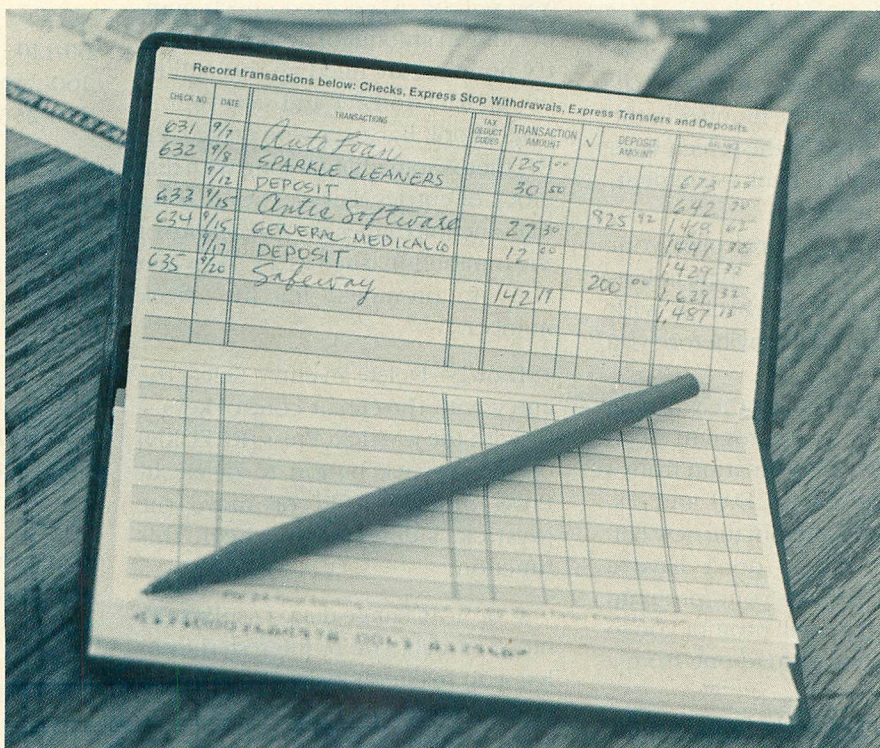 WELLS FA
Record transactions below: Checks, Express Stop Withdrawals, Express Transfers and Deposits
CHECK NO. DATE TRANSACTIONS TAX DEDUCT CODES TRANSACTION AMOUNT √ DEPOSIT AMOUNT BALANCE
631 9/7 Auto Loan 125 00 673 20
632 9/8 SPARKLE CLEANERS 30 50 642 70
9/12 DEPOSIT 825 92 1,468 62
633 9/15 Antic Software 27 30 1,441 32
634 9/15 GENERAL MEDICAL CO 12 00 1,429 32
9/17 DEPOSIT 200 00 1,629 32
635 9/20 Safeway 142 19 1,487 13